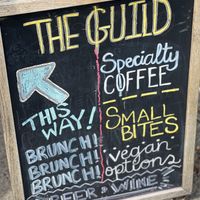 THE GUILD
THIS WAY!
BRUNCH!
BRUNCH!
BRUNCH!
Specialty
COFFEE
SMALL
BITES
Vegan
options
BEER & WINE